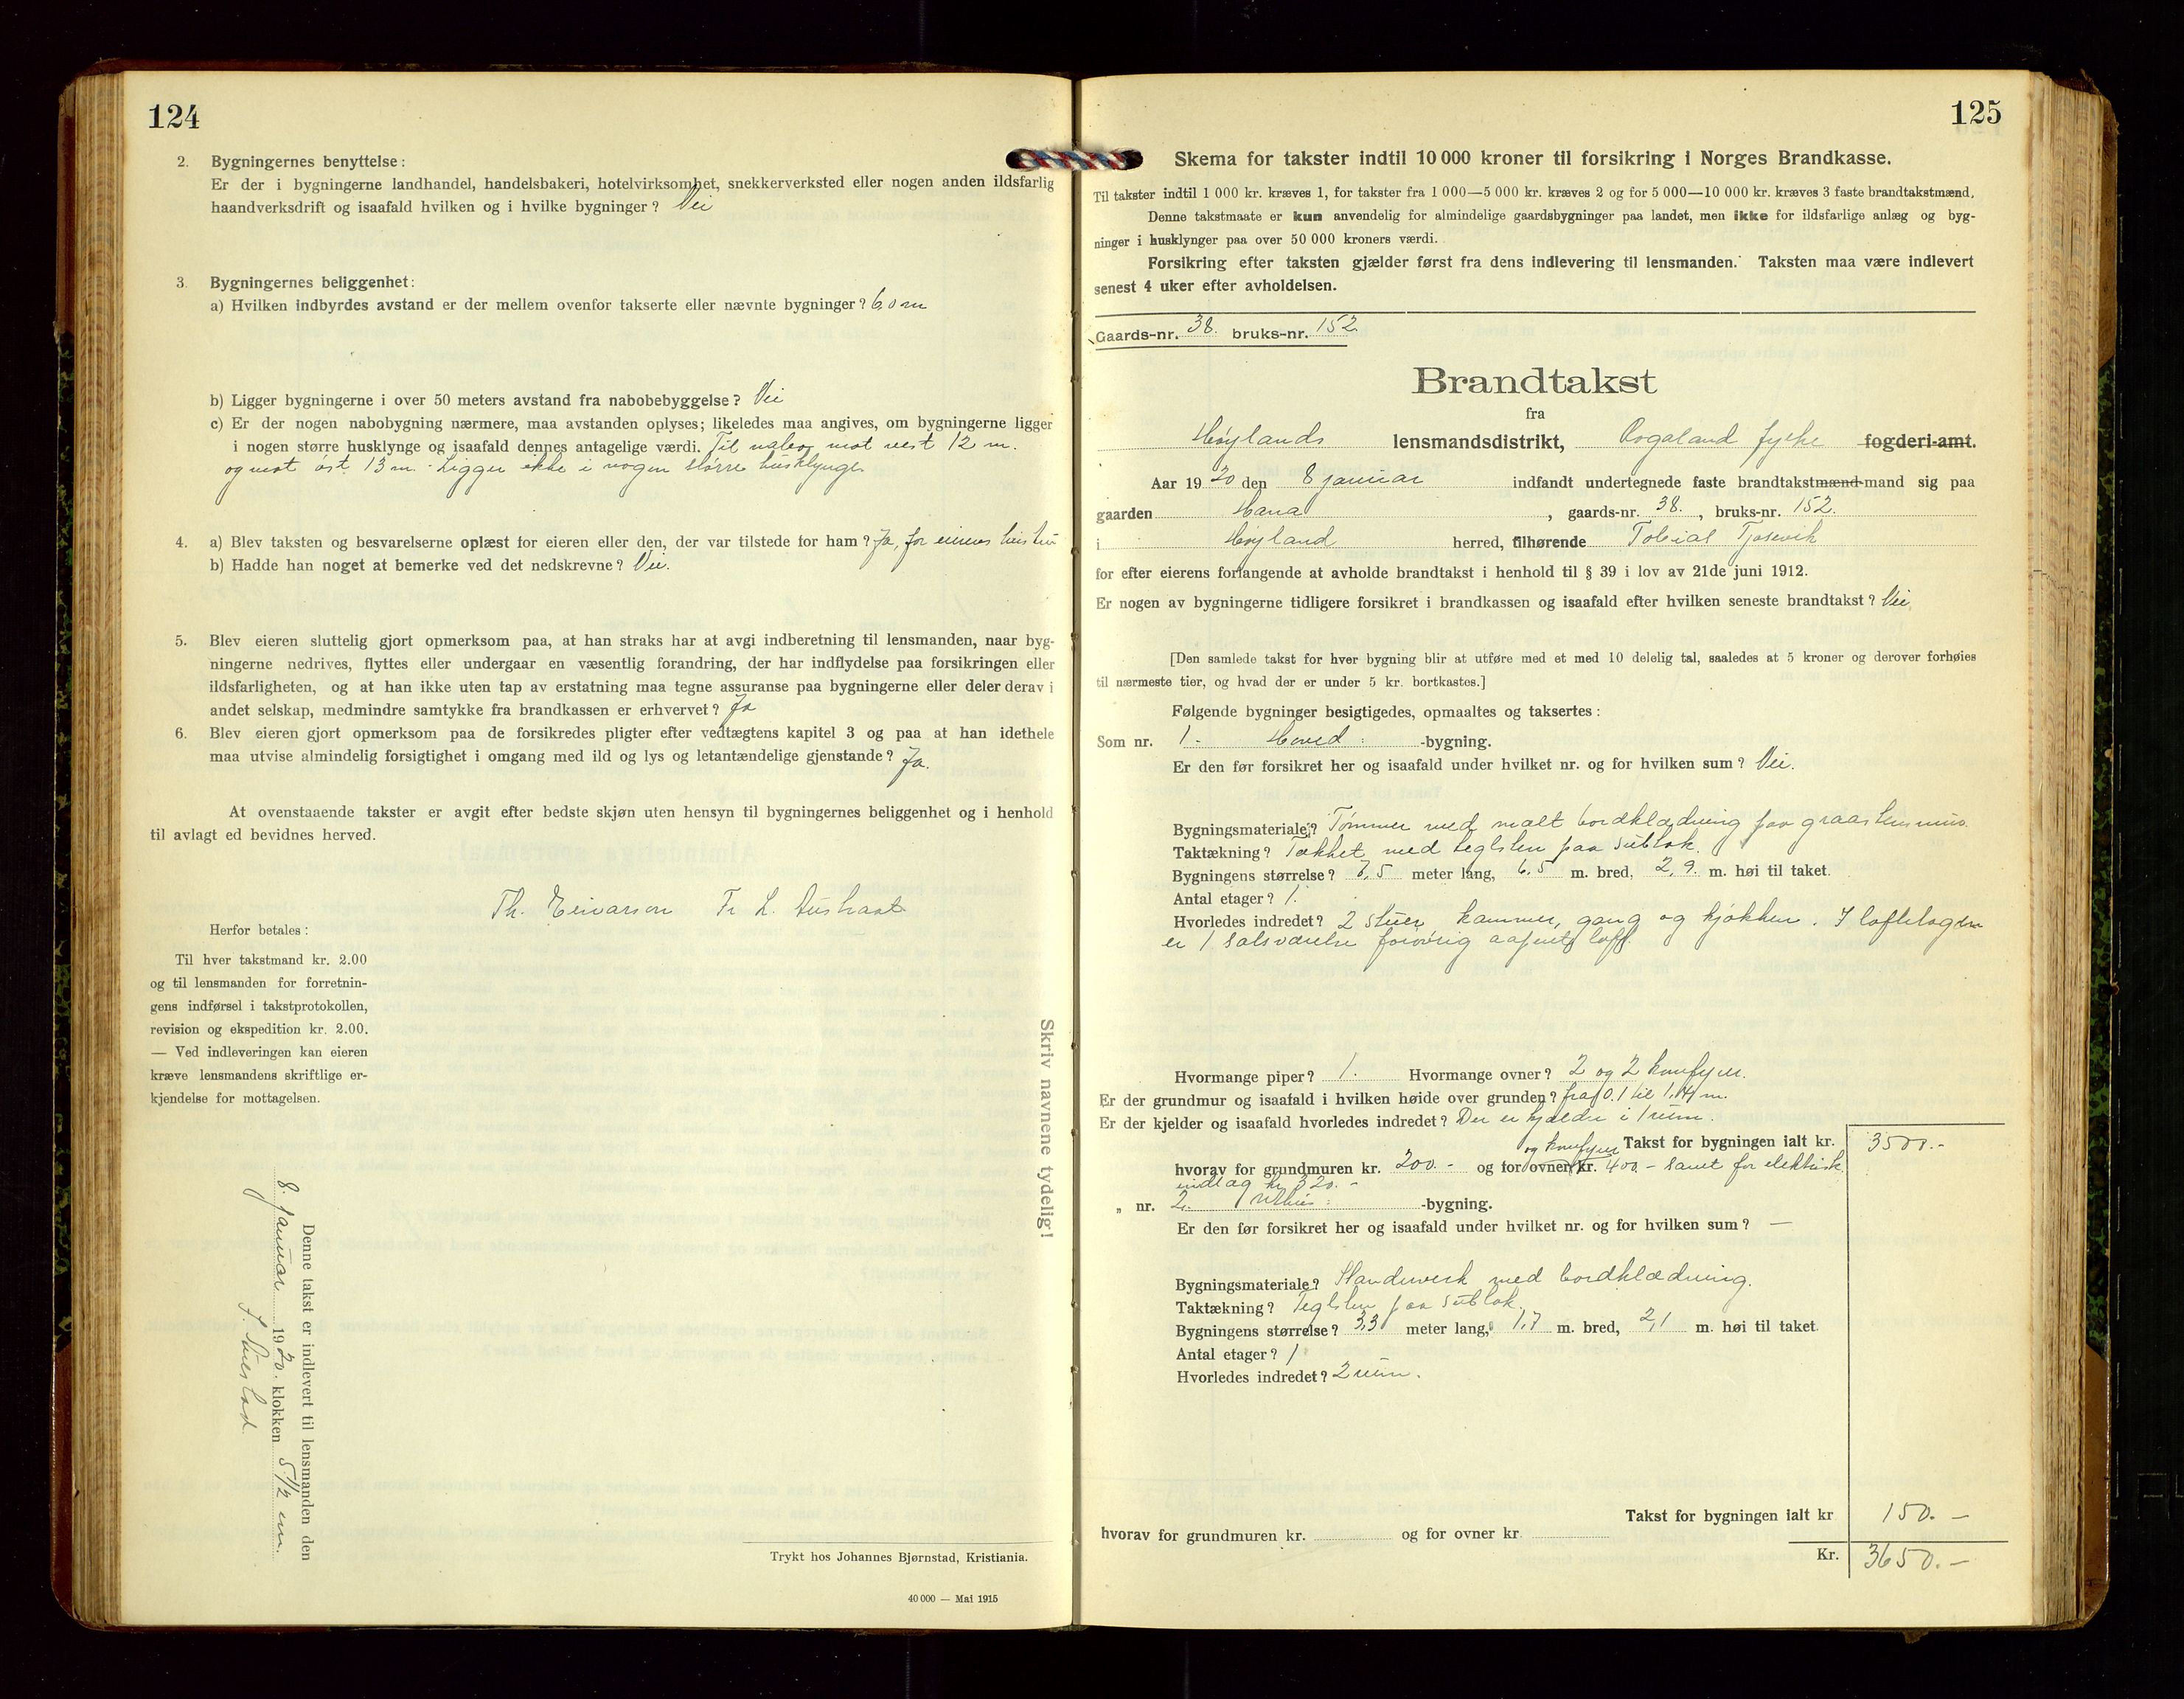 124
2. Bygningernes benyttelse:
Er der i bygningerne landhandel, handelsbakeri, hotelvirksomhet, snekkerverksted eller nogen anden ildsfarlig
haandverksdrift og isaafald hvilken og i hvilke bygninger? Nei
3. Bygningernes beliggenhet:
a) Hvilken indbyrdes avstand er der mellem ovenfor takserte eller nævnte bygninger? 6,0 m
b) Ligger bygningerne i over 50 meters avstand fra nabobebyggelse? Nei
c) Er der nogen nabobygning nærmere, maa avstanden oplyses; likeledes maa angives, om bygningerne ligger
i nogen større husklynge og isaafald dennes antagelige værdi. Til nabo mot vest 12 m.
og mot øst 13 m. Ligger ikke i nogen større husklynge
4. a) Blev taksten og besvarelserne oplæst for eieren eller den, der var tilstede for ham? Ja, for eierens hustru
b) Hadde han noget at bemerke ved det nedskrevne? Nei.
5. Blev eieren sluttelig gjort opmerksom paa, at han straks har at avgi indberetning til lensmanden, naar byg-
ningerne nedrives, flyttes eller undergaar en væsentlig forandring, der har indflydelse paa forsikringen eller
ildsfarligheten, og at han ikke uten tap av erstatning maa tegne assuranse paa bygningerne eller deler derav i
andet selskap, medmindre samtykke fra brandkassen er erhvervet? Ja
6. Blev eieren gjort opmerksom paa de forsikredes pligter efter vedtægtens kapitel 3 og paa at han idethele
maa utvise almindelig forsigtighet i omgang med ild og lys og letantændelige gjenstande? Ja.
At ovenstaaende takster er avgit efter bedste skjøn uten hensyn til bygningernes beliggenhet og i henhold
til avlagt ed bevidnes herved.
Th. Eivarson Fr L. Austraat
Herfor betales:
Til hver takstmand kr. 2.00
og til lensmanden for forretnin-
gens indførsel i takstprotokollen,
revision og ekspedition kr. 2.00.
— Ved indleveringen kan eieren
kræve lensmandens skriftlige er-
kjendelse for mottagelsen.
Skriv navnene tydelig!
Denne takst er indlevert til lensmanden den
8. januar 1920. klokken 5 1/2 em.
Trykt hos Johannes Bjørnstad, Kristiania.
40 000 — Mai 1915
125
Skema for takster indtil 10 000 kroner til forsikring i Norges Brandkasse.
Til takster indtil 1 000 kr. kræves 1, for takster fra 1 000—5 000 kr. kræves 2 og for 5 000—10 000 kr. kræves 3 faste brandtakstmænd.
Denne takstmaate er kun anvendelig for almindelige gaardsbygninger paa landet, men ikke for ildsfarlige anlæg og byg-
ninger i husklynger paa over 50 000 kroners værdi.
Forsikring efter taksten gjælder først fra dens indlevering til lensmanden. Taksten maa være indlevert
senest 4 uker efter avholdelsen.
Gaards-nr. 38. bruks-nr. 152.
Brandtakst
fra
Høylands lensmandsdistrikt, Rogaland fylke fogderi-amt.
Aar 1920 den 8 januar indfandt undertegnede faste brandtakstmænd-mand sig paa
gaarden Hana, gaards-nr. 38., bruks-nr. 152.
i Høyland herred, tilhørende Tobias Tjosevik
for efter eierens forlangende at avholde brandtakst i henhold til § 39 i lov av 21de juni 1912.
Er nogen av bygningerne tidligere forsikret i brandkassen og isaafald efter hvilken seneste brandtakst? Nei
[Den samlede takst for hver bygning blir at utføre med et med 10 delelig tal, saaledes at 5 kroner og derover forhøies
til nærmeste tier, og hvad der er under 5 kr. bortkastes.]
Følgende bygninger besigtigedes, opmaaltes og taksertes:
Som nr. 1. Hoved: -bygning.
Er den før forsikret her og isaafald under hvilket nr. og for hvilken sum? Nei.
Bygningsmateriale? Tømmer med malt bordklædning paa graastensmur.
Taktækning? Tækket med teglsten paa sutak.
Bygningens størrelse? 7,5 meter lang, 6,5 m. bred, 2,9. m. høi til taket.
Antal etager? 1.
Hvorledes indredet? 2 stuer kammer, gang og kjøkken. I loftetagen
er 1 salsværelse forøvrig aapent loft.
Hvormange piper? 1. Hvormange ovner? 2 og 2 komfyrer.
Er der grundmur og isaafald i hvilken høide over grunden? fra 0.1 til 1,4 m.
Er der kjelder og isaafald hvorledes indredet? Der er kjelder i 1 rum.
Takst for bygningen ialt kr. 3500.-
og komfyrer
hvorav for grundmuren kr. 200.- og for ovner kr. 400.- samt for elektrisk
indlæg kr 320.-
„ nr. 2. Uthus: -bygning.
Er den før forsikret her og isaafald under hvilket nr. og for hvilken sum? —
Bygningsmateriale? Standverk med bordklædning.
Taktækning? Teglsten paa sutak.
Bygningens størrelse? 3,3 meter lang, 1,7 m. bred, 2,1 m. høi til taket.
Antal etager? 1
Hvorledes indredet? 2 rum.
Takst for bygningen ialt kr 150.-
hvorav for grundmuren kr. og for ovner kr.
Kr. 3650.-